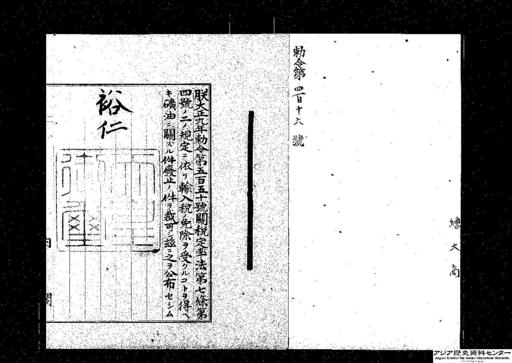 勅令第四百十六號
總大商
朕大正九年勅令第五百五十號關税定率法第七條第
四號ノ二ノ規定ニ依リ輸入税ノ免除ヲ受クルコトヲ得ヘ
キ礦油ニ關スル件廢止ノ件ヲ裁可シ茲ニ之ヲ公布セシム
裕仁
内閣
アジア歴史資料センター
Japan Center for Asian Historical Records